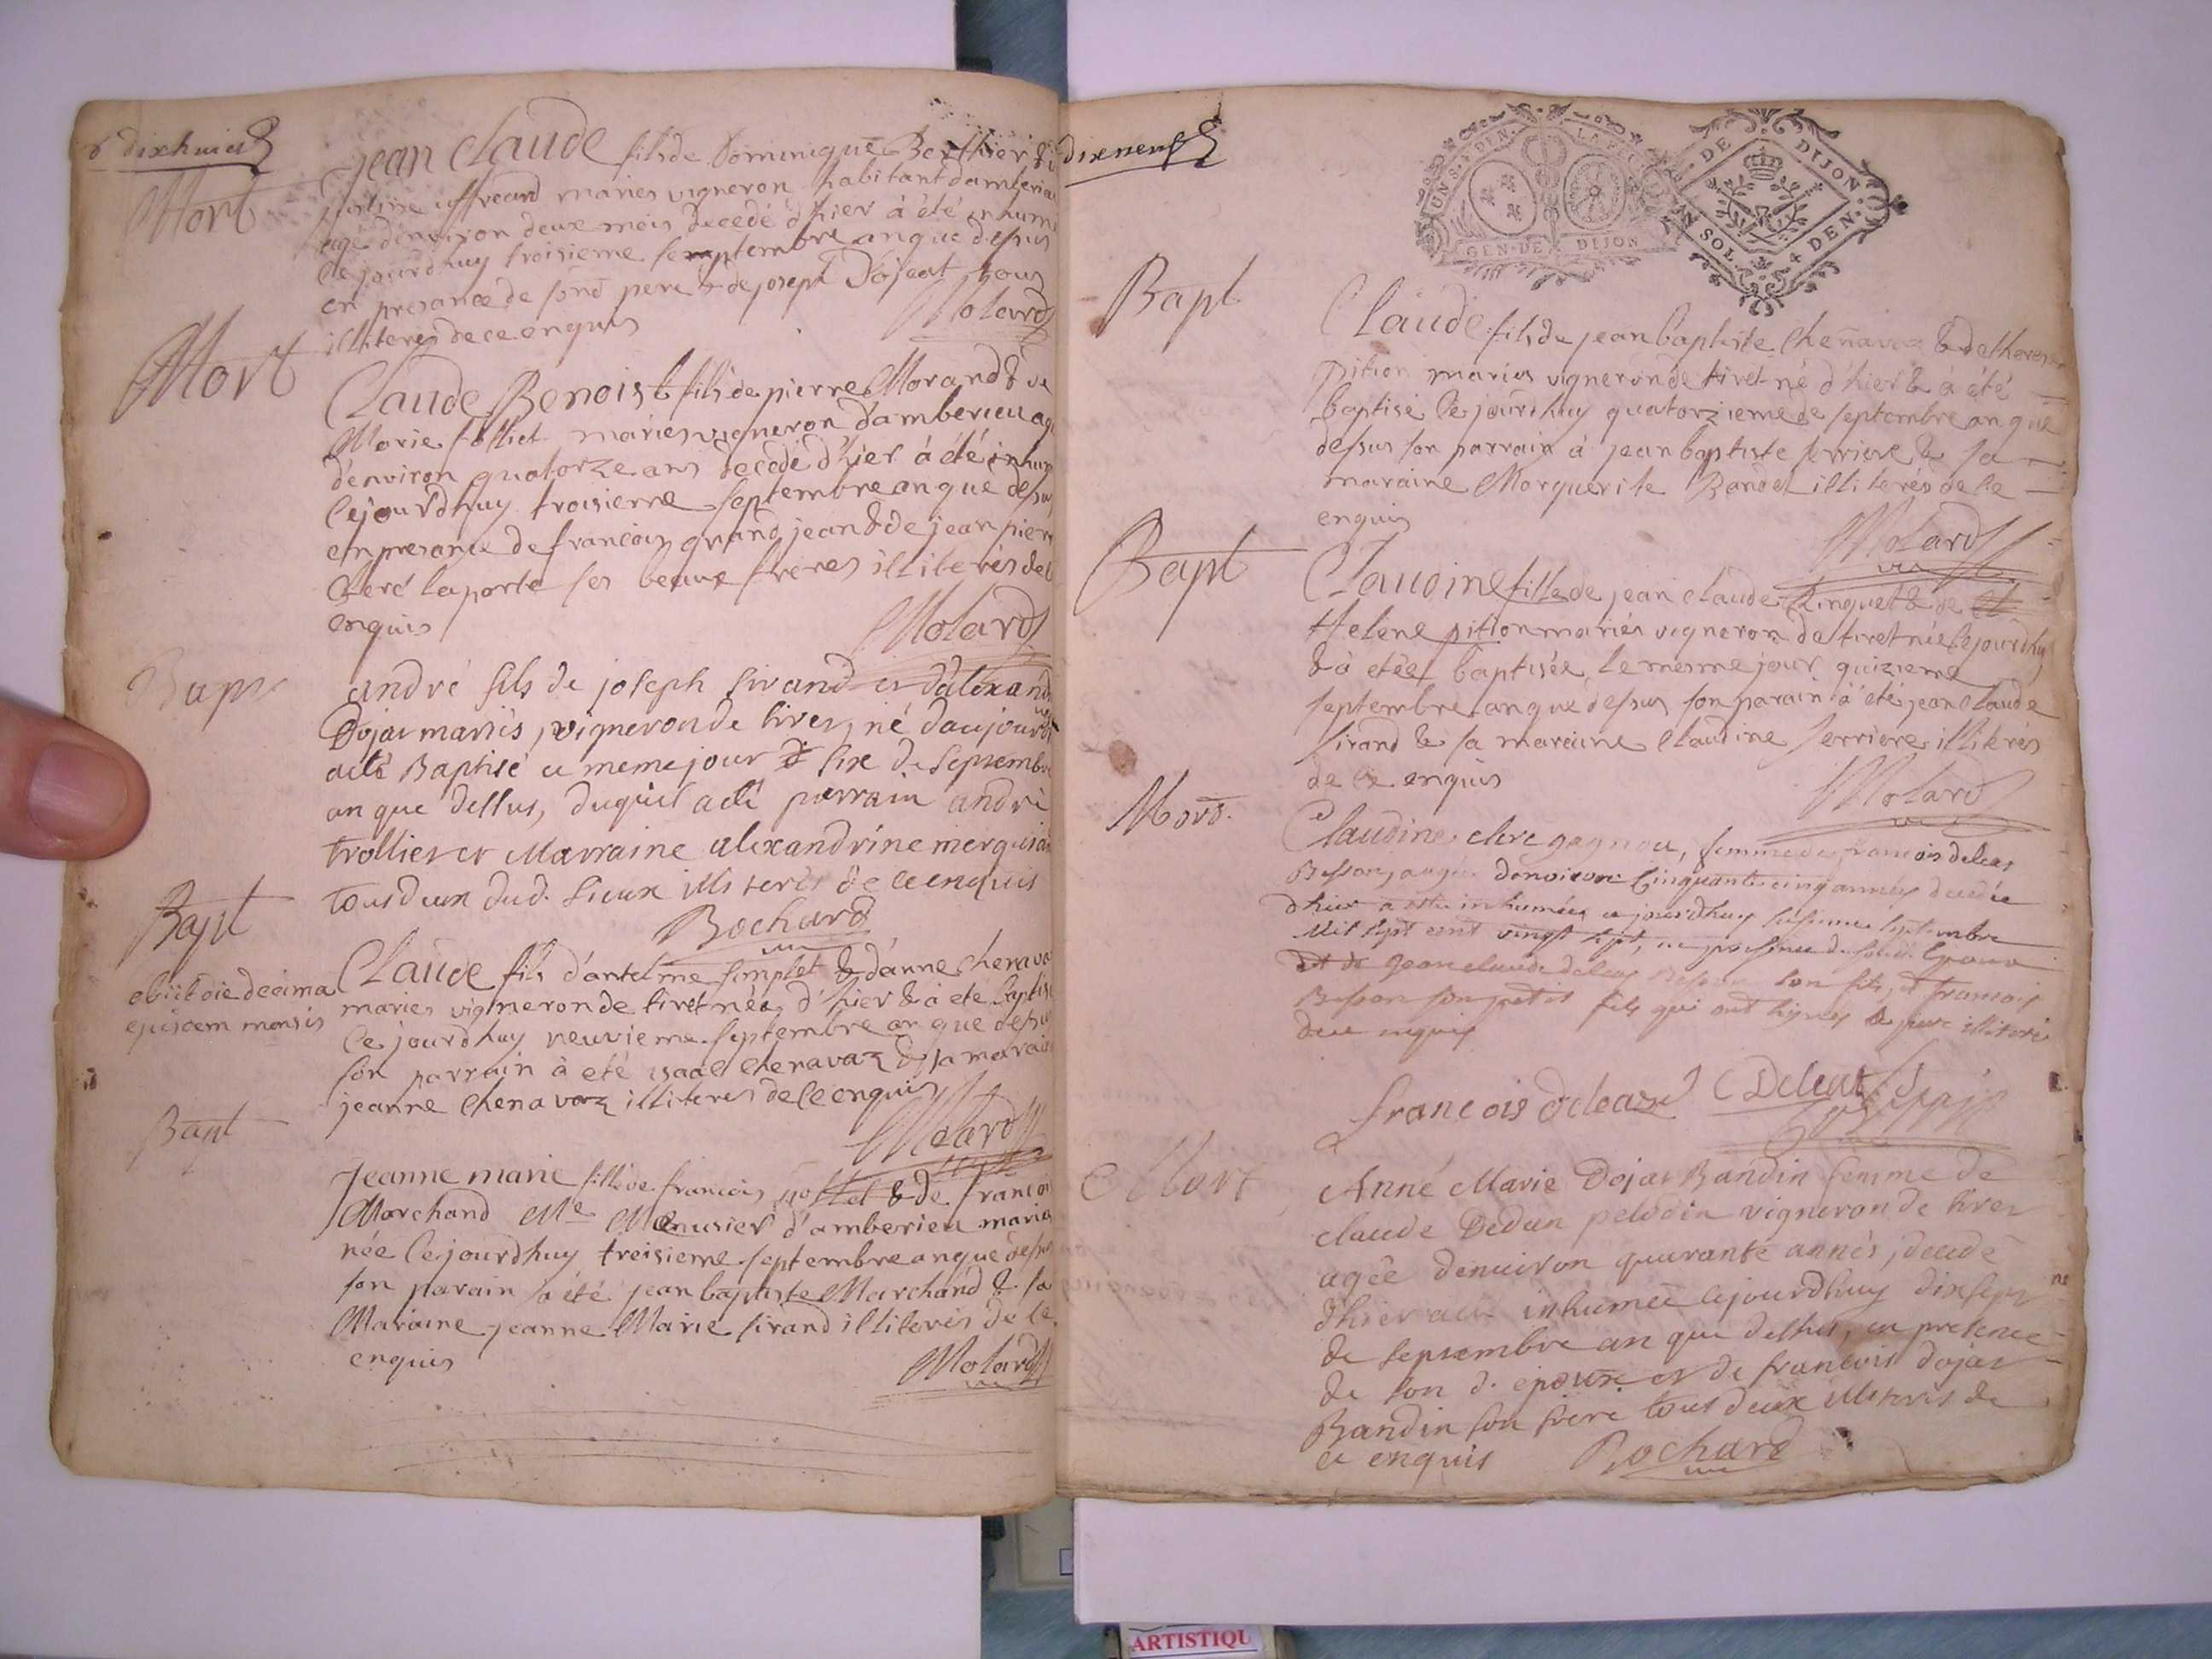 dixhuict
Mort
jean Claude fils de Dominique Berthier &
mariés vigneron habitant damberieu
agé d'environ deux mois decedé d'hier à été inhumé
ce jourdhuy troisieme septembre an que dessus
en presance de sond pere & de joseph Dojat tous
illiteres de ce enquis
Molard
Mort
Claude Benoist fils de pierre Morand & de
Marie folliet mariés vigneron d'amberieu agé
d'environ quatorze ans decedé d'hier à été inhumé
cejourdhuy troisieme septembre an que dessus
en presance de francois grand jean & de jean pierre
Clerc laporte ses beaux freres illiterés de ce
enquis
Molard
Bapt
andré fils de joseph sirand et d'alexandrine
Dojat mariés, vigneron de tiret, né daujourdhuy
a eté Baptisé ce meme jour six de septembre
an que dessus, duquel a eté parrain andré
trollier et Marraine alexandrine
tous deux dud. lieux illiterés de ce enquis
Rochard
Bapt
obiit die decima
ejusdem mensis
Claude fils d'antelme simplet & d'anne chenavaz
mariés vigneron de tiret né d'hier & à eté baptisé
ce jourdhuy neuvieme septembre an que dessus
son parrain à eté isaac chenavaz & sa maraine
jeanne chenavaz illiteres de ce enquis
Molard
Bapt
Jeanne marie fille de francois & de francoise
Marchand Me Menusier d'amberieu mariés
née cejourdhuy treisieme septembre an que dessus
son parain à été jean baptiste Marchand & sa
Maraine jeanne Marie sirand illiterés de ce
enquis
Molard
dixneuf
UN SOL 4 DEN. LA F.
GEN. DE DIJON
DE DIJON
UN SOL 4 DEN.
Bapt
Claude fils de jean baptiste Chenavaz & de therese
pition mariés vigneron de tiret né d'hier & à été
baptisé cejourdhuy quatorzieme de septembre an que
dessus son parrain à jean baptiste ferriere & sa
maraine Marguerite Bandet illiterés de ce
enquis
Molard
Bapt
Claudine fille de jean claude Ringuet & de
Helene pition mariés vigneron de tiret née cejourdhuy
& à etée baptisée le mesme jour quizieme
septembre an que dessus son parain à été jean claude
sirand & sa maraine claudine ferriere illiterés
de ce enquis
Molard
Mord.
Claudine clerc gagnou, femme de francois deleas
Besson, agée denviron Cinquante cinq années decedée
dhier a esté inhumée ce jourdhuy seisieme septembre
Mil sept cent vingt sept, en presence de
jean claude deleas Besson son fils, et francois
Besson son petit fils qui ont signes
de ce enquis
francois deleas Deleas
Mort
Anne Marie Dojat Bandin femme de
claude Dedun pelodin vigneron de tiret
agée denuiron quarante années, decedé
dhier a eté inhumée cejourdhuy dixsept
de septembre an que dessus, en presence
de son d. epoux et de francois dojat
Bandin son frere tous deux illiterés de
ce enquis
Rochard
ARTISTIQU